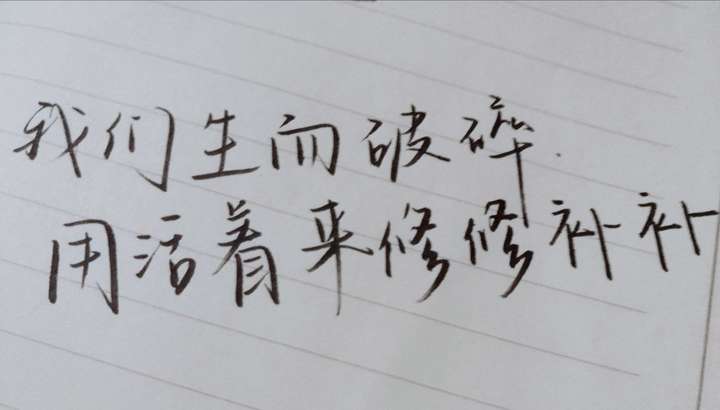 我们生而破碎.
用活着来修修补补